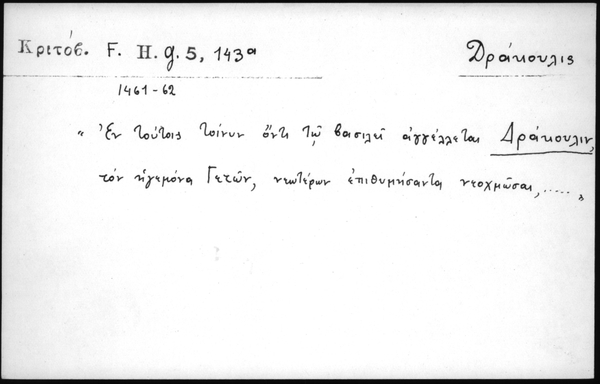 Κριτόβ. F. H. g. 5, 143a
Δράκουλις
1461-62
" Ἐν τούτοις τοίνυν ὄντι τῷ βασιλεῖ ἀγγέλλεται Δράκουλιν,
τὸν ἡγεμόνα Γετῶν, νεωτέρων ἐπιθυμήσαντα νεοχμῶσαι, ..... "